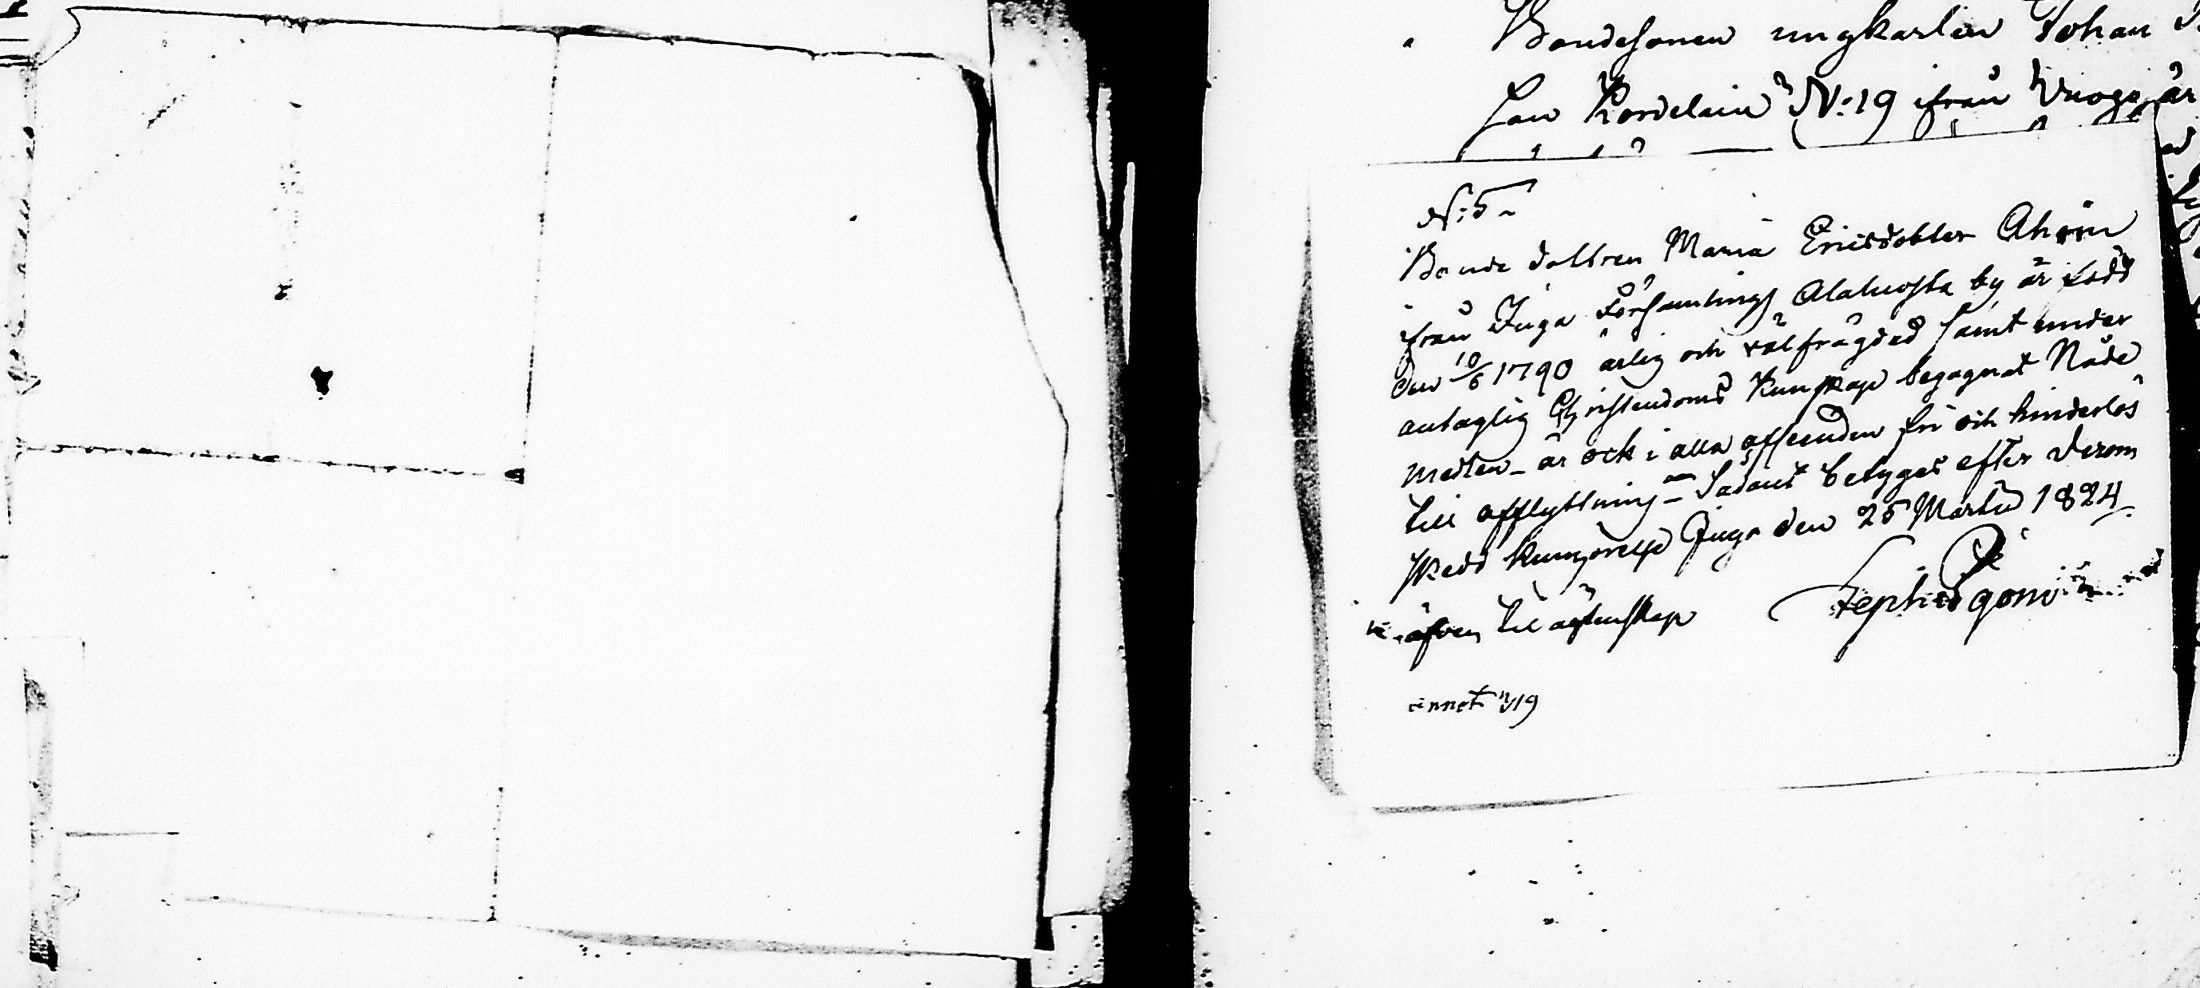 Bondesonen ungkarlen Johan
Son Kordelain N:19 ifrån
N:5
Bonde dottren Maria Ericsdotter Ahoin
ifrån Inga Församlings Alakuosta by är född
den 10/6 1790 ärlig och välfrägdad samt under
antaglig Christendoms Kunskap begagnat Nåde
medlen - är ock i alla afseenden fri och hinderlös
till afflyttning - Sådant betygas efter derom
skedd kungörelse Inga den 25 Martii 1824
äfven til ägtenskap